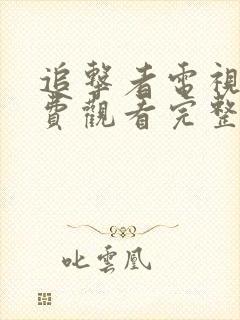 追擊者電視
費觀看完整
叱雲凰